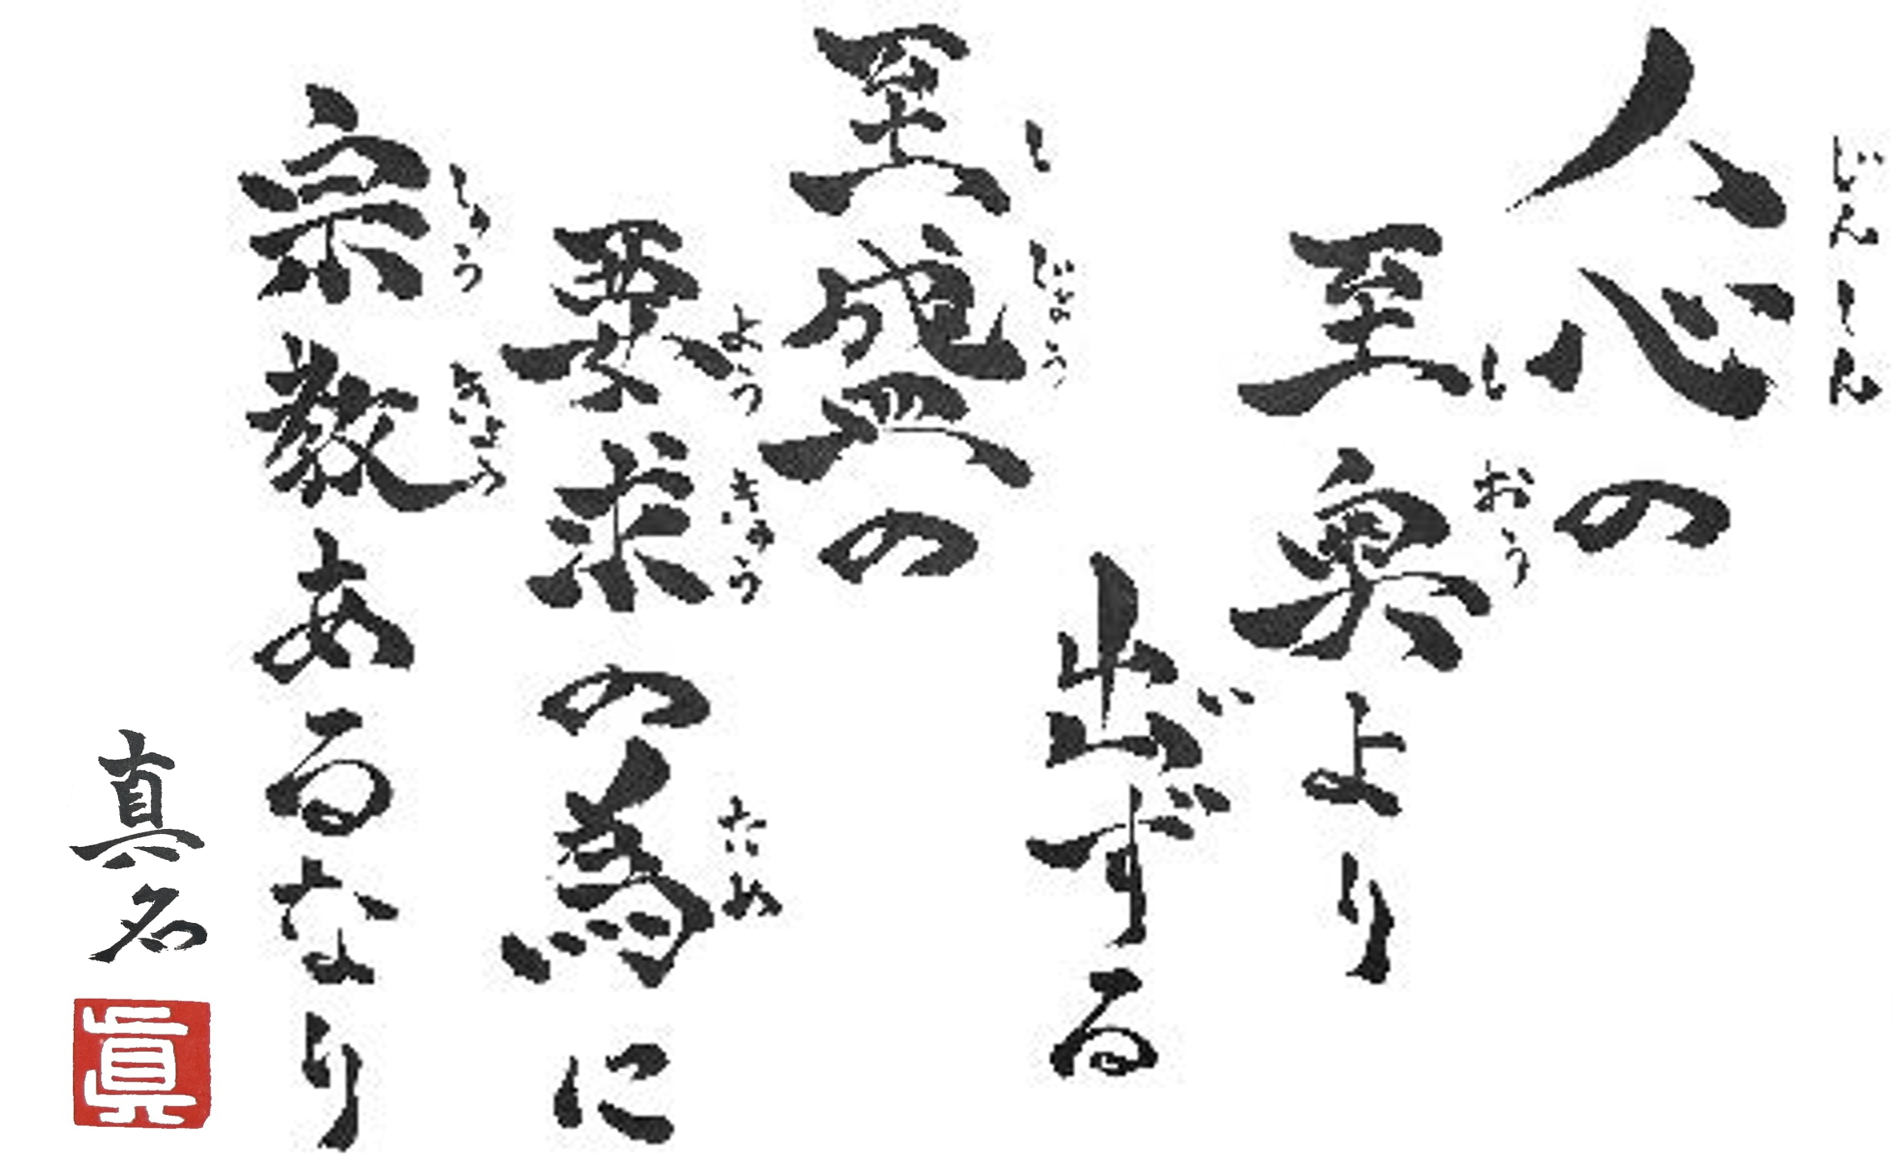 人心の
じんしん
至奥より
しおう
出ずる
至盛の
しじょう
要求の為に
ようきゅう ため
宗教あるなり
しゅうきょう
真名
眞